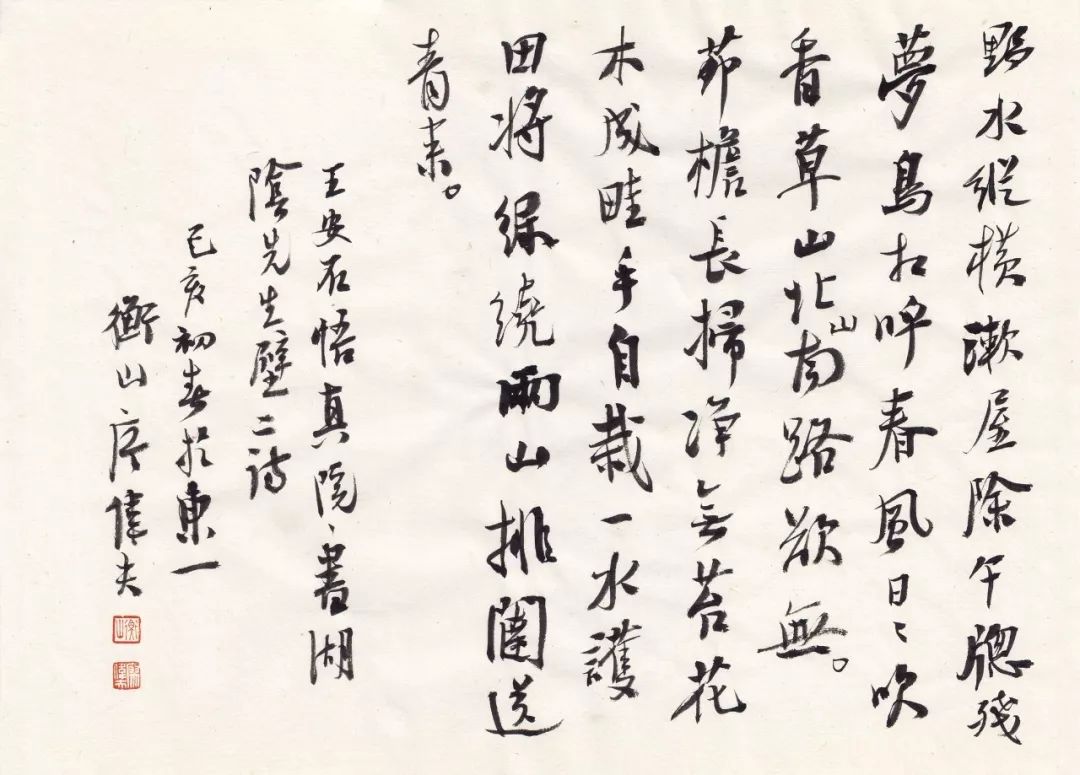 野水縱橫漱屋除午牕殘
夢鳥相呼春風日〻吹
香草山北山南路欲無。
茆檐長掃淨无苔花
木成畦手自栽一水護
田將綠繞兩山排闥送
青来。
王安石悟真院、書湖
陰先生壁二诗
己亥初春於東一
衡山偉夫
衡山